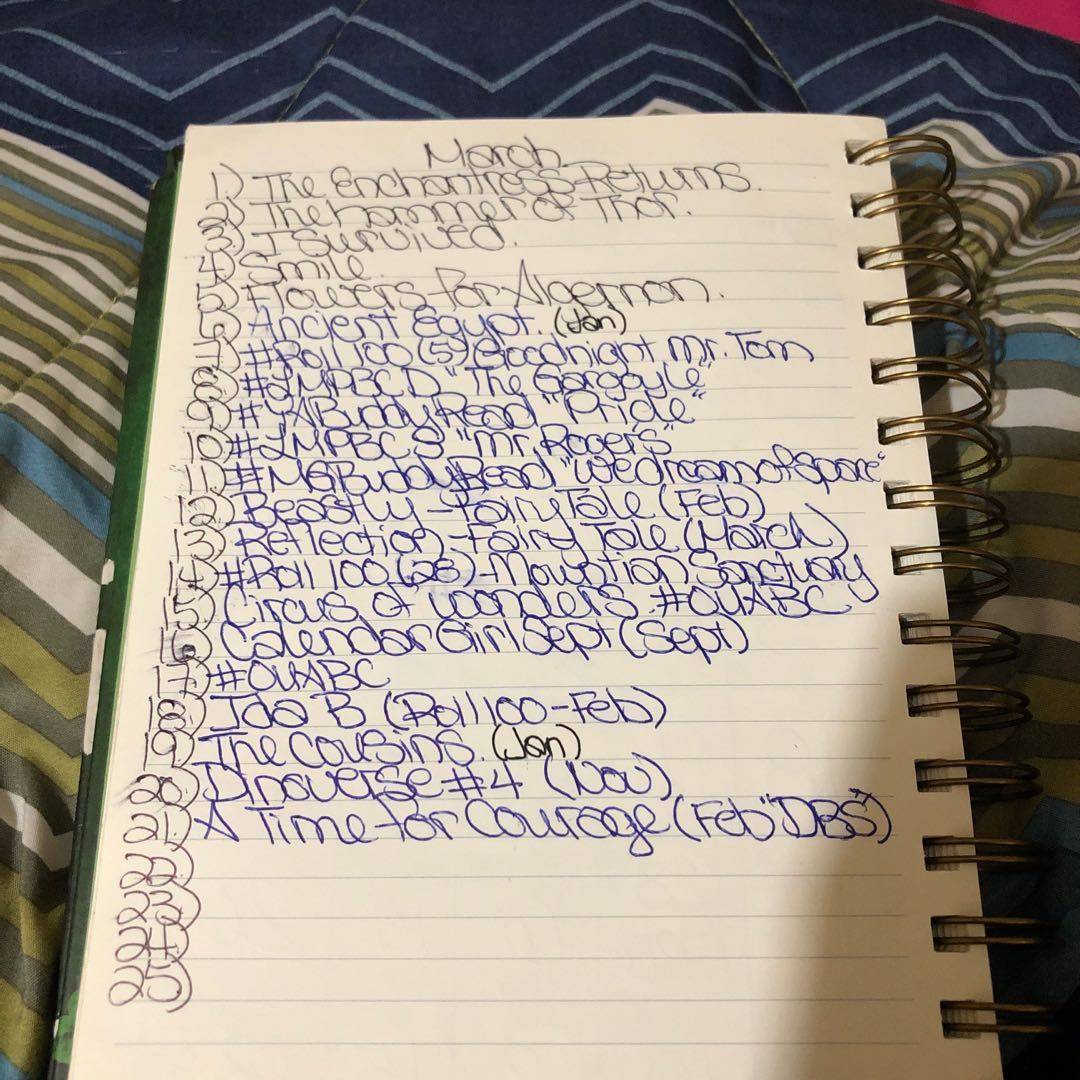 March
1) The Enchantress Returns.
2) The Hammer of Thor.
3) I Survived.
4) Smile.
5) Flowers for Algernon.
6) Ancient Egypt. (Jan)
7) #Roll100 (5) Goodnight Mr. Tom
8) #LMPBC D "The Gargoyle"
9) #YABuddyRead "Pride"
10) #LMPBC S "Mr. Rogers"
11) #MGBuddyRead "We dream of space"
12) Beastly - Fairy Tale (Feb)
13) Reflection - Fairy Tale (March)
14) #Roll100 (28) - Sanctuary
15) Circus of wonders #OUABC
16) Calendar Girl Sept (Sept)
17) #OUABC
18) Ida B (Roll100 - Feb)
19) The Cousins. (Jan)
20) Dinoverse #4 (Nov)
21) A Time for Courage (Feb "DBS")
22)
23)
24)
25)